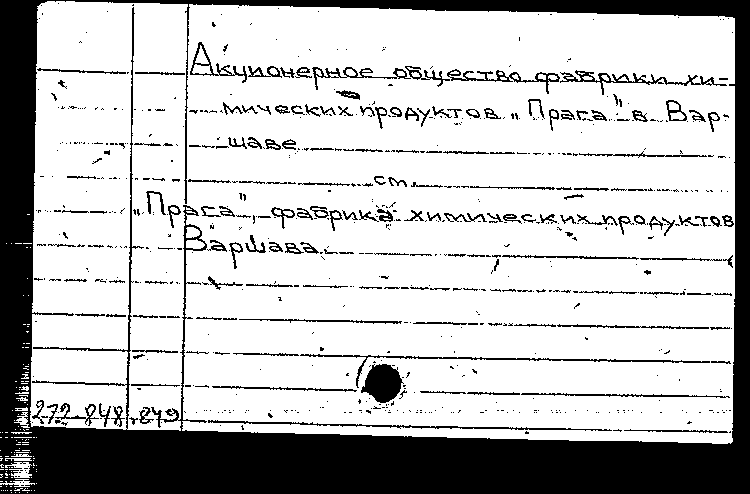 Акционерное общество фабрики хи-
мических продуктов „Прага" в Вар-
шаве
см.
„Прага", фабрика химических продуктов
Варшава.
272-848, 849